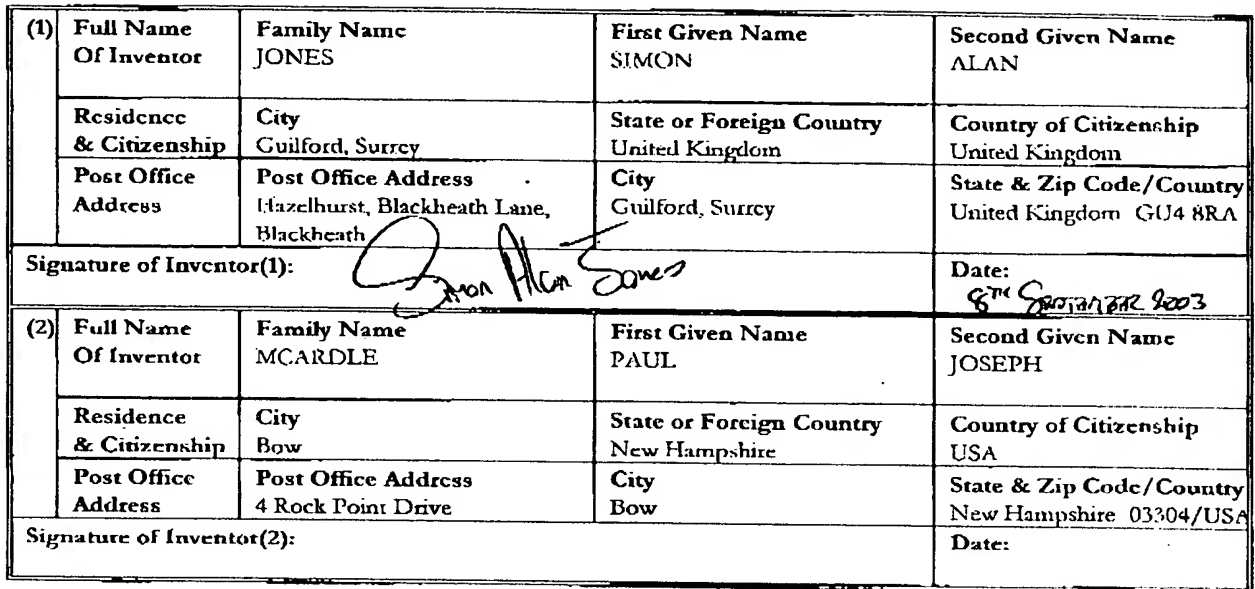 (1) Full Name Of Inventor Family Name JONES First Given Name SIMON Second Given Name ALAN
Residence & Citizenship City Guilford, Surrey State or Foreign Country United Kingdom Country of Citizenship United Kingdom
Post Office Address Post Office Address Hazelhurst, Blackheath Lane, Blackheath City Guilford, Surrey State & Zip Code/Country United Kingdom GU4 8RA
Signature of Inventor(1): Simon Alan Jones Date: 8TH SEPTEMBER 2003
(2) Full Name Of Inventor Family Name MCARDLE First Given Name PAUL Second Given Name JOSEPH
Residence & Citizenship City Bow State or Foreign Country New Hampshire Country of Citizenship USA
Post Office Address Post Office Address 4 Rock Point Drive City Bow State & Zip Code/Country New Hampshire 03304/USA
Signature of Inventor(2): Date: